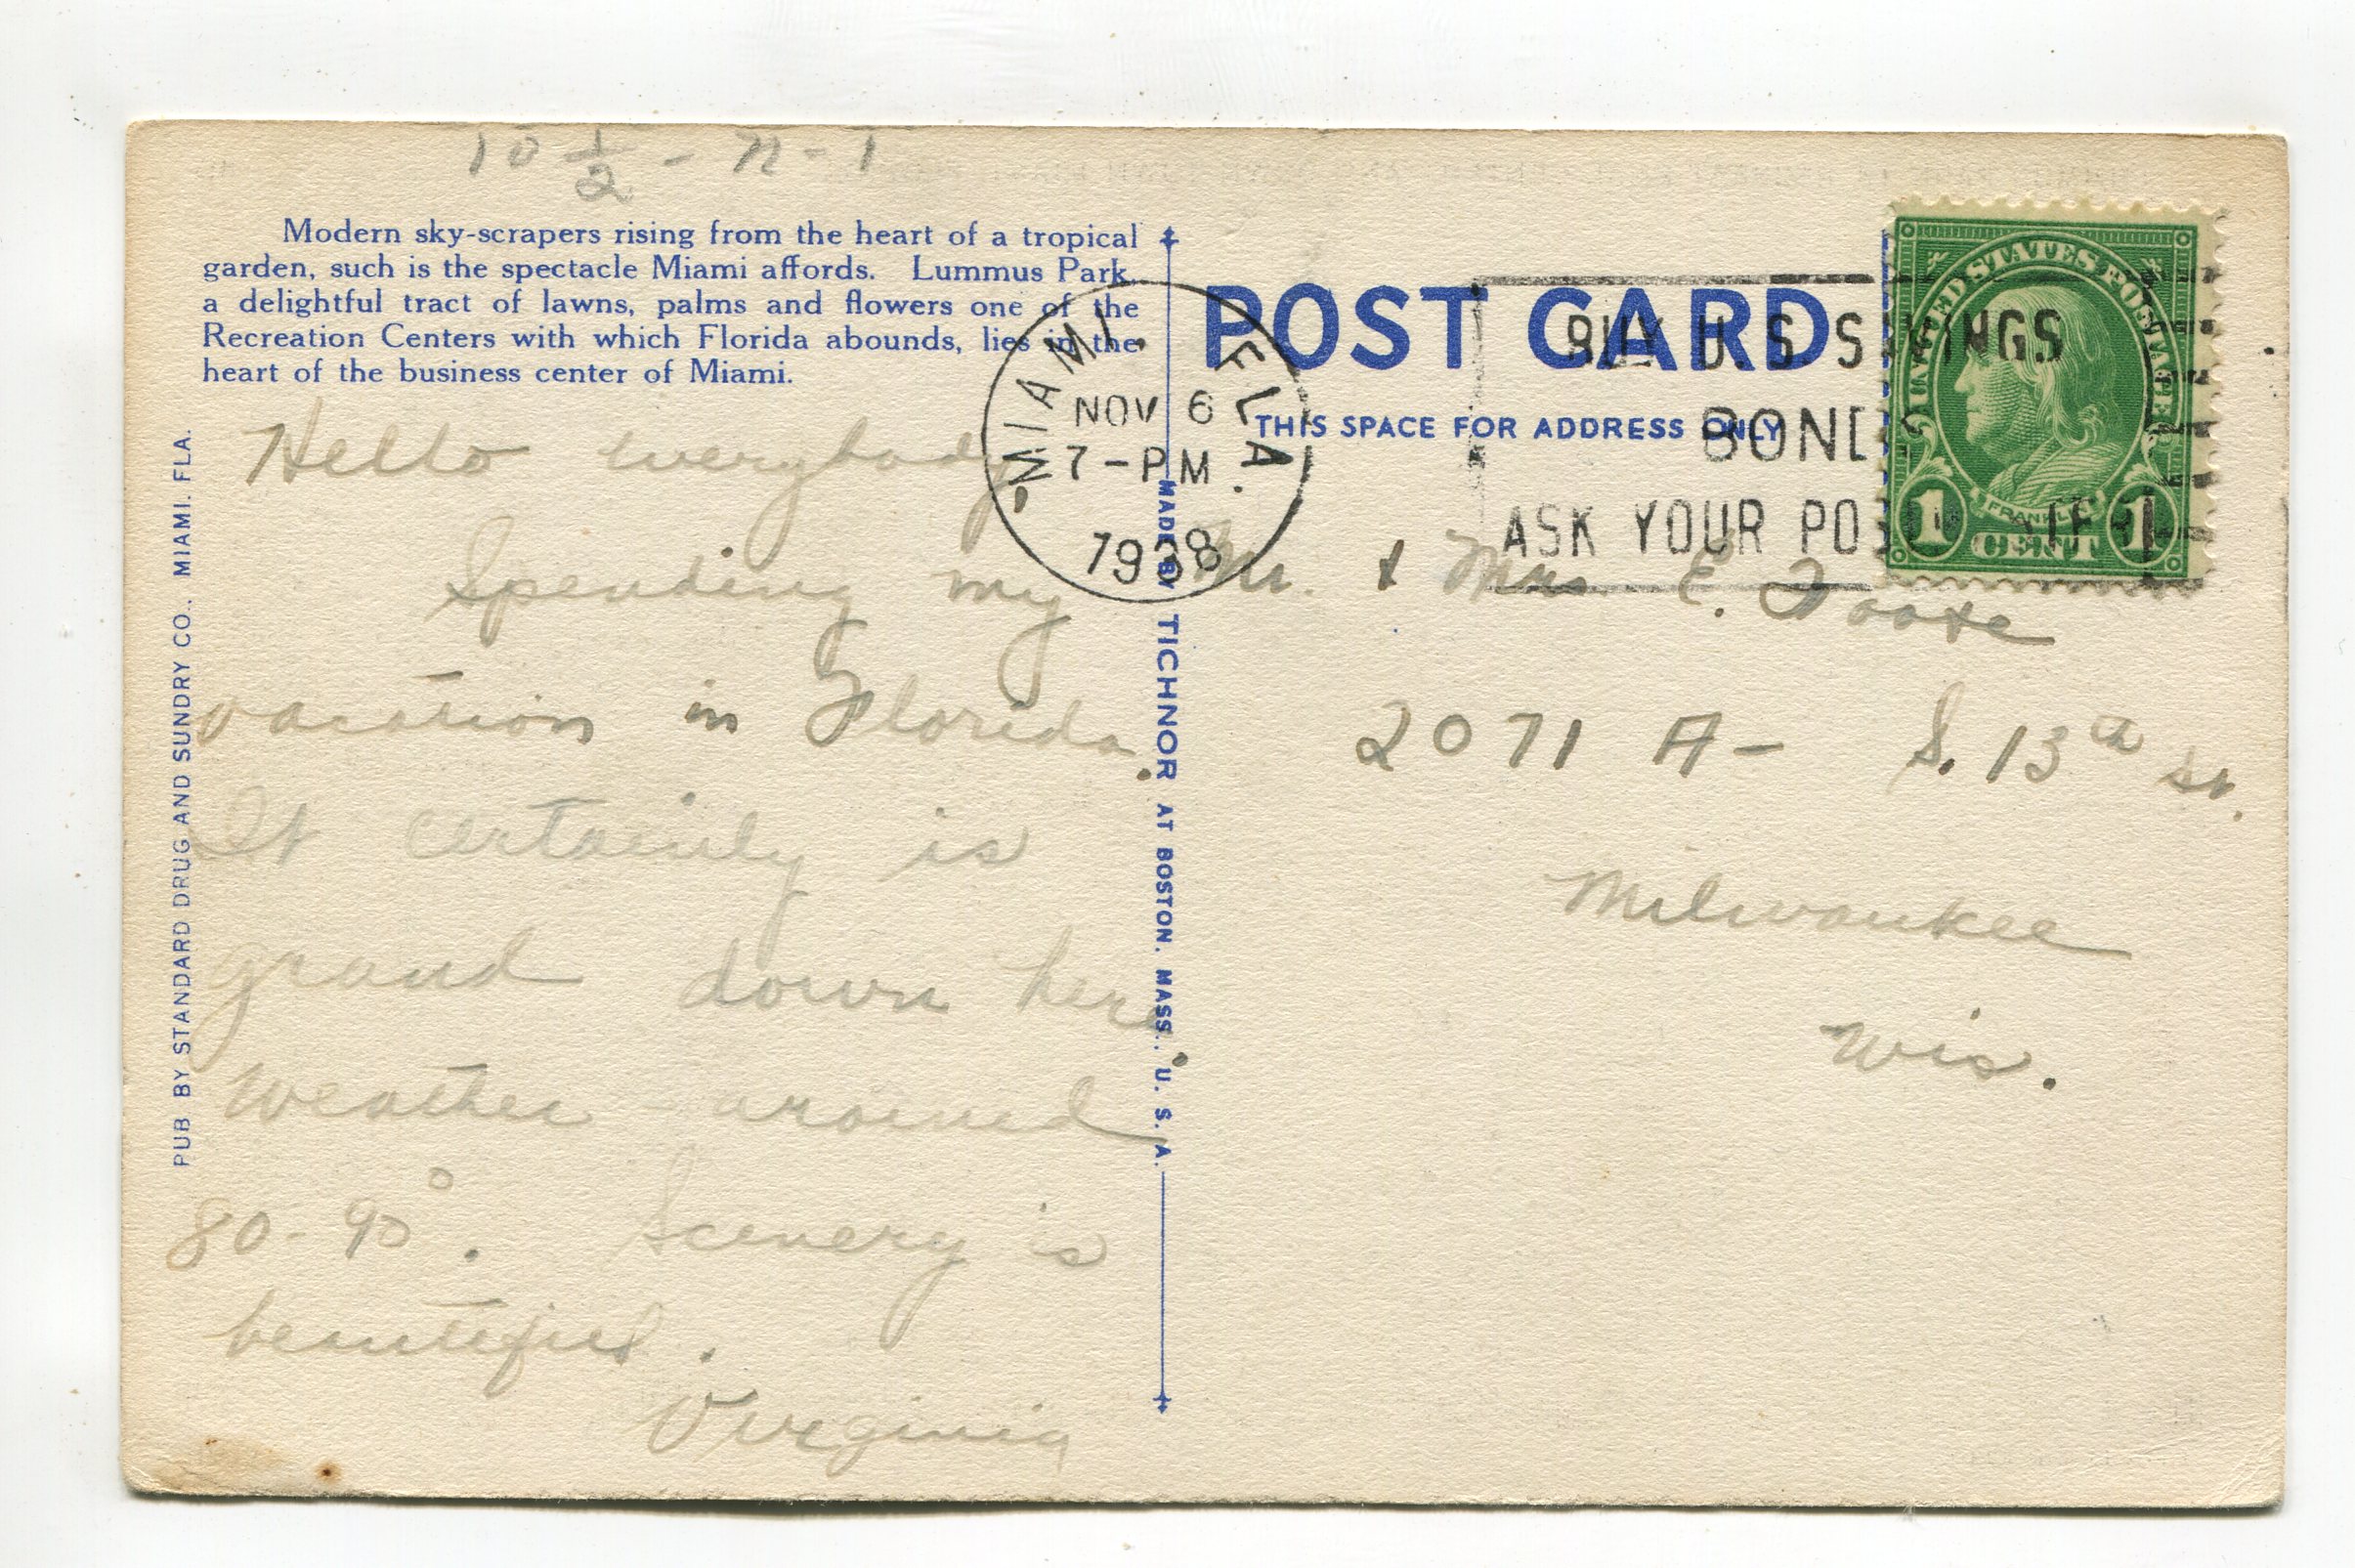 10 1/2 - n - 1
Modern sky-scrapers rising from the heart of a tropical
garden, such is the spectacle Miami affords. Lummus Park,
a delightful tract of lawns, palms and flowers one of the
Recreation Centers with which Florida abounds, lies in the
heart of the business center of Miami.
Hello everybody,
Spending my
vacation in Florida.
It certainly is
grand down here.
Weather around
80-90°. Scenery is
beautiful.
Virginia
PUB BY STANDARD DRUG AND SUNDRY CO., MIAMI, FLA.
MADE BY TICHNOR AT BOSTON, MASS., U. S. A.
MIAMI, FLA.
NOV 6
7-PM
1938
POST CARD
THIS SPACE FOR ADDRESS ONLY
BUY U.S. SAVINGS
BONDS
ASK YOUR POSTMASTER
UNITED STATES POSTAGE
FRANKLIN
1 CENT 1
Mr. & Mrs. E. Foote
2071 A- S. 13th St.
Milwaukee
Wis.